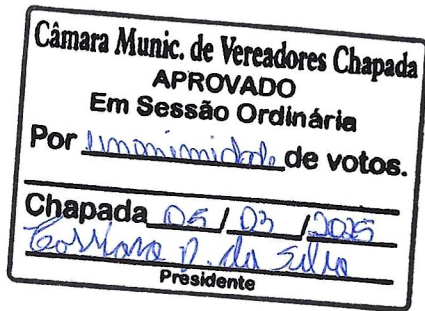 Câmara Munic. de Vereadores Chapada
APROVADO
Em Sessão Ordinária
Por unanimidade de votos.
Chapada 05 / 03 / 2025
D. da Silva
Presidente